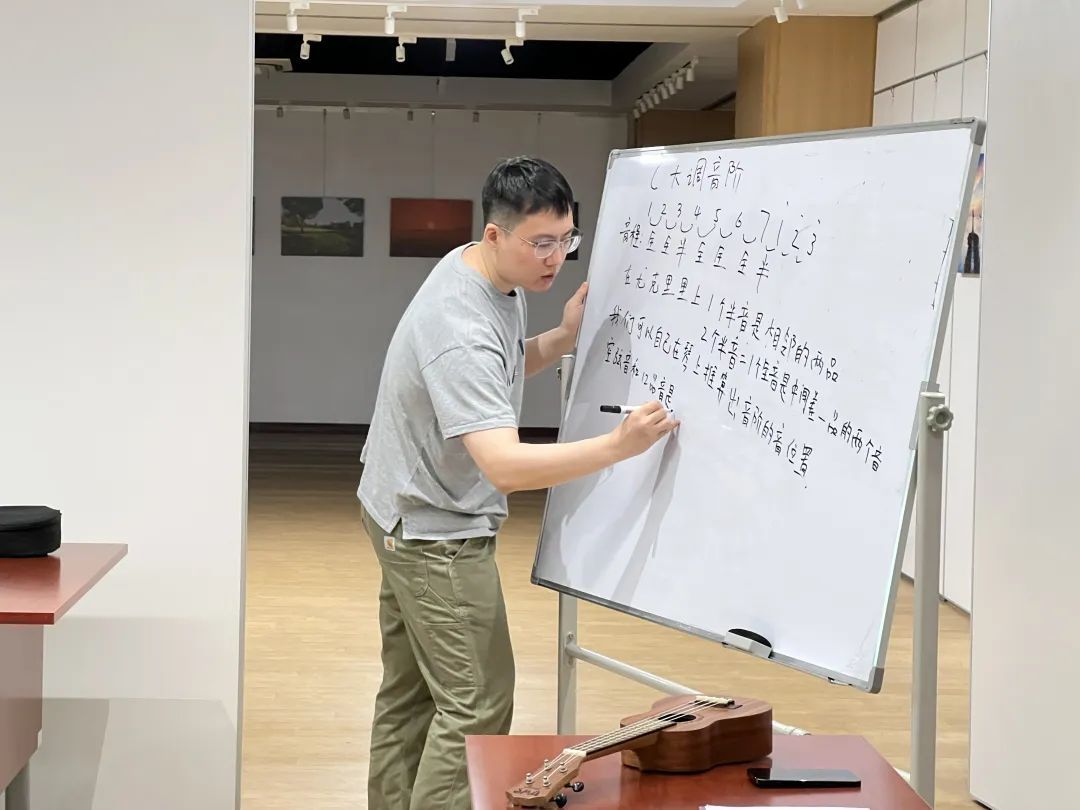 C大调音阶
1 2 3 4 5 6 7 1̇ 2̇ 3̇
音程:全 全 半 全 全 全 半
在尤克里里上1个半音是相邻的两品
2个半音=1个全音是中间差一品的两个音
我们可以自己在琴上推算出音阶的音位置.
空弦音和12品音是